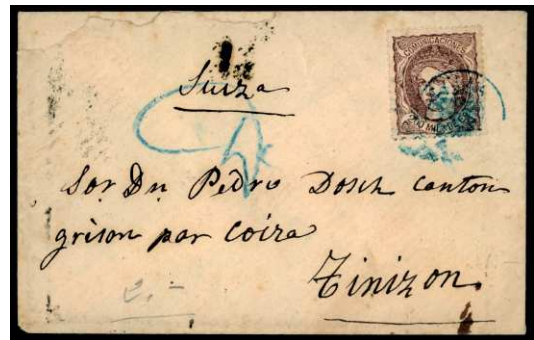 COMUNICACIONES
Suiza
Sor Dn Pedro Dosch canton
grison par Coira
Tinizon.